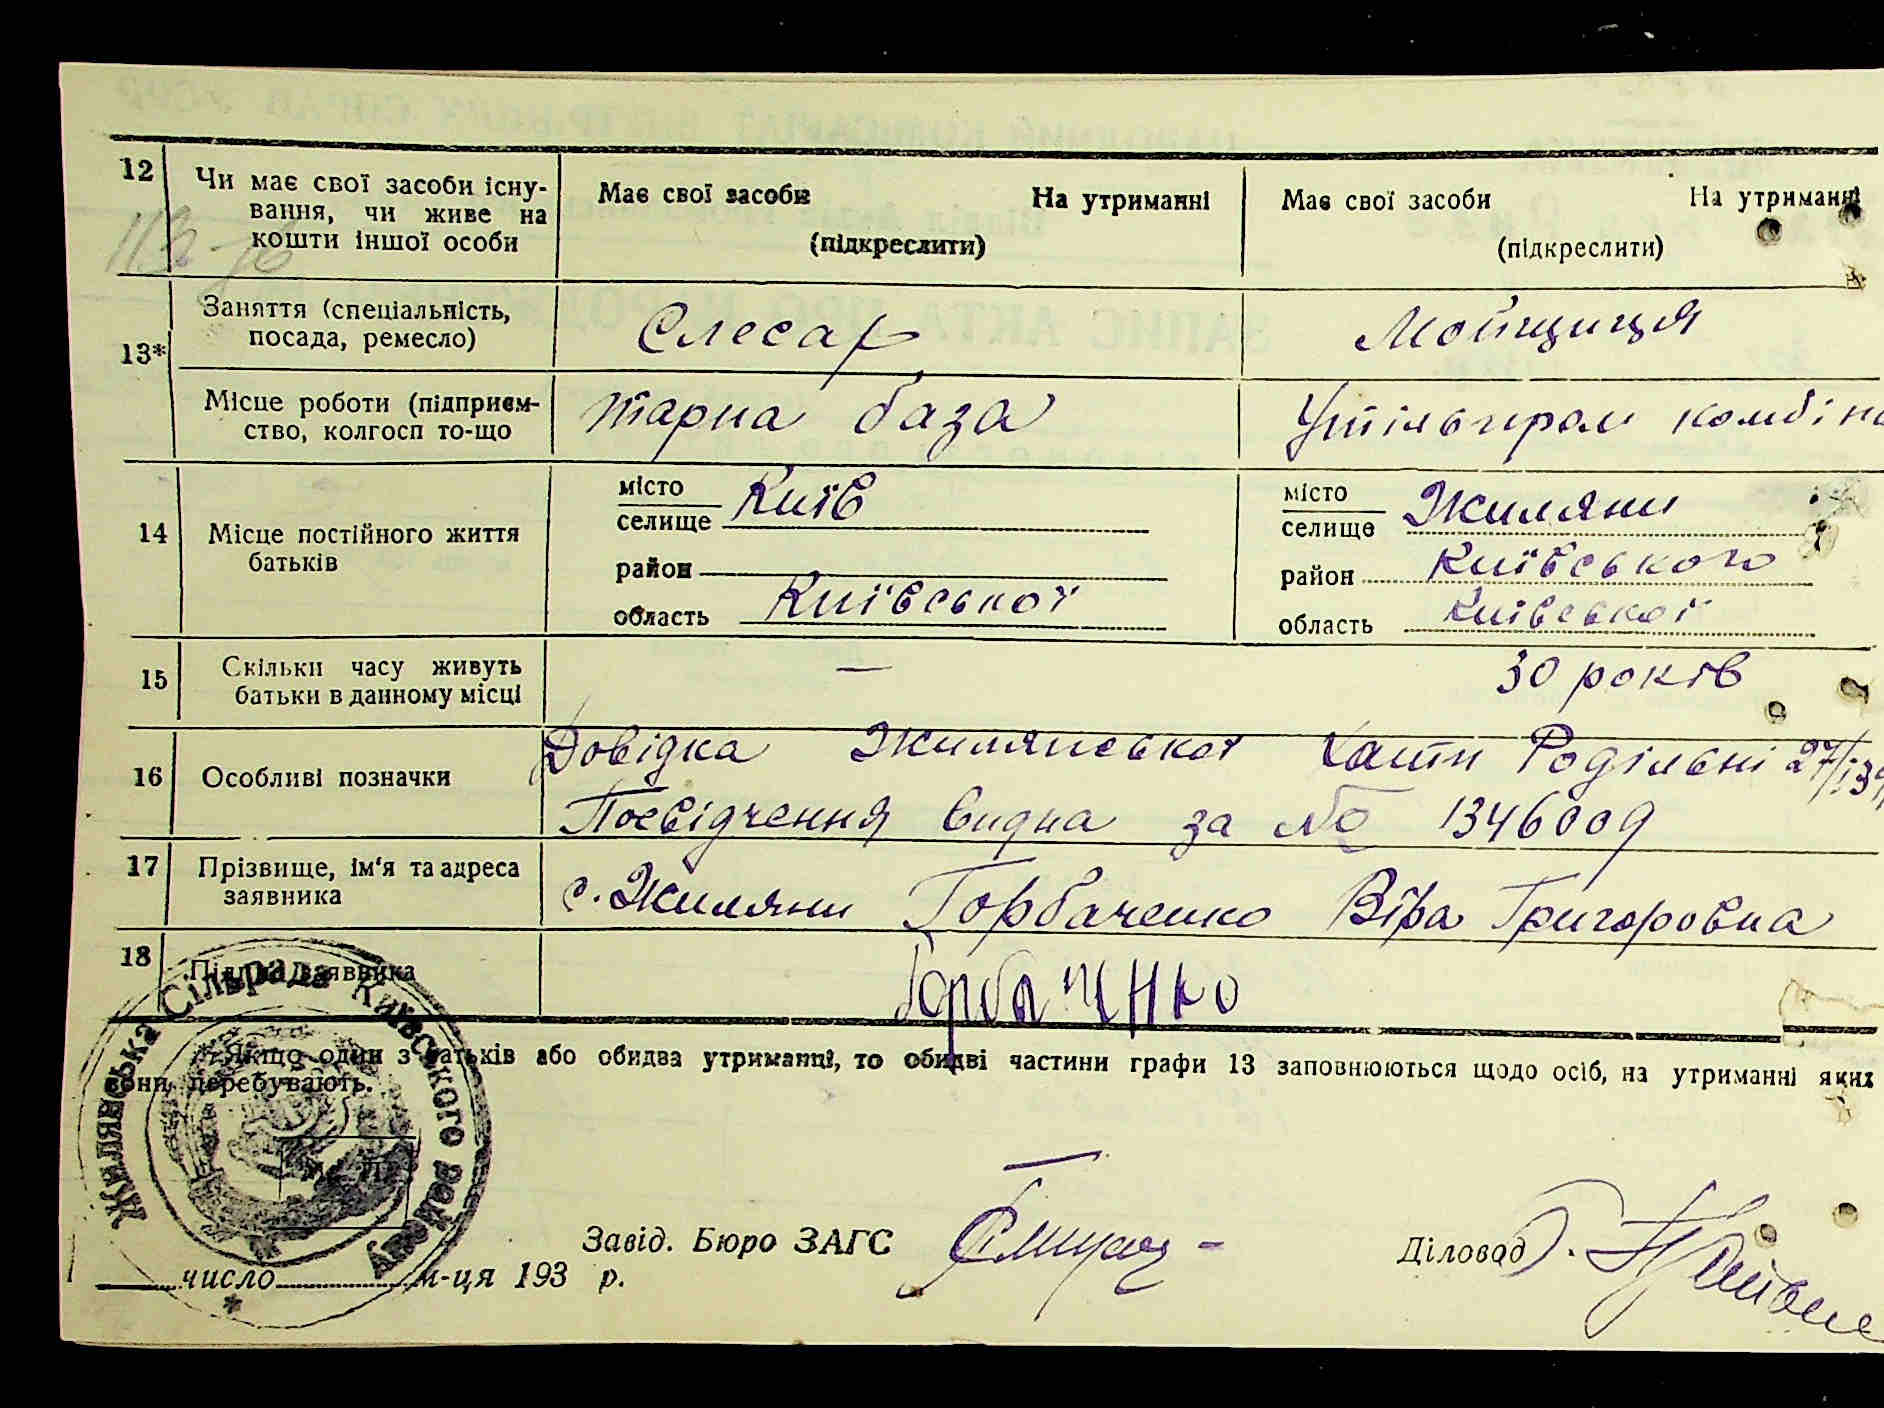 12
Чи має свої засоби існу-
вання, чи живе на
кошти іншої особи
Має свої засоби На утриманні
(підкреслити)
Має свої засоби На утриманні
(підкреслити)
13*
Заняття (спеціальність,
посада, ремесло)
Слесар
Мойщиця
Місце роботи (підприєм-
ство, колгосп то-що
тарна база
Утільпром комбіна
14
Місце постійного життя
батьків
місто
селище
Київ
район
область Київської
місто
селище
Жиляни
район Київського
область Київської
15
Скільки часу живуть
батьки в данному місці
—
30 років
16 Особливі позначки
Довідка Жилянської Хати Родільні 27/I
Посвідчення видна за № 1346009
17
Прізвище, ім'я та адреса
заявника
с. Жиляни Горбаченко Віра Григоровна
18
Підпис заявника
Горбачнко
Якщо один з батьків або обидва утриманці, то обидві частини графи 13 заповнюються щодо осіб, на утриманні яких
вони перебувають.
Жилянська Сільрада Київского району
М. П.
Завід. Бюро ЗАГС
Діловод
число м-ця 193 р.